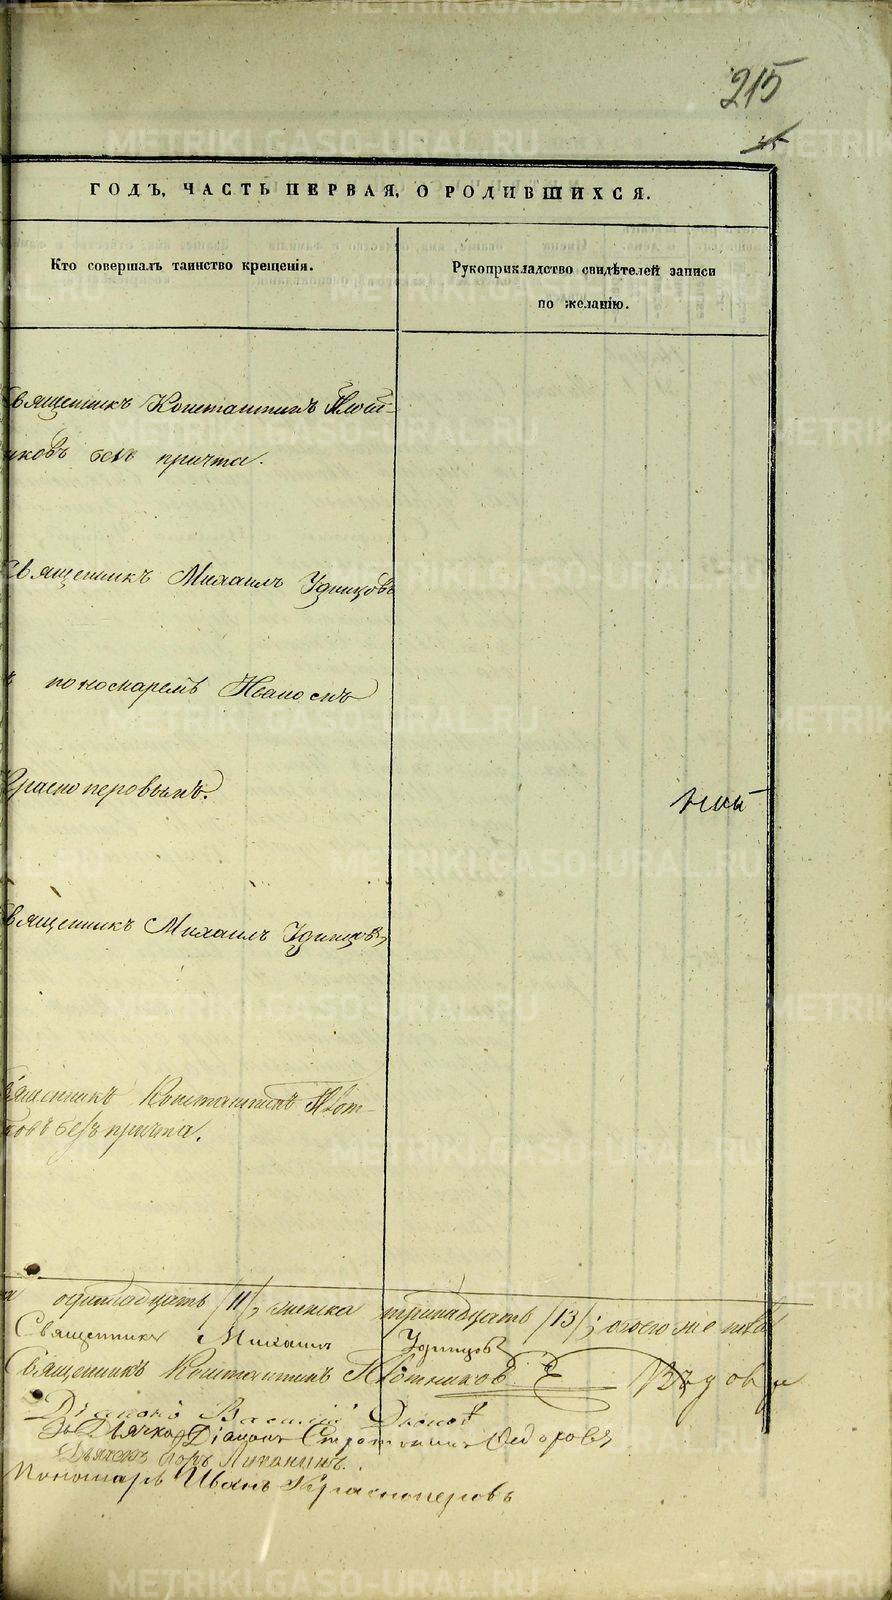 215
ГОДЪ, ЧАСТЬ ПЕРВАЯ, О РОДИВШИХСЯ.
Кто совершалъ таинство крещенія.
Рукоприкладство свидѣтелей записи
по желанію.
Священникъ Константинъ Плот-
никовъ безъ причта.
Священникъ Михаилъ Удинцовъ
пономаремъ Иваномъ
Красноперовымъ.
Священникъ Михаилъ Удинцовъ
Священникъ Константинъ Плот-
никовъ безъ причта.
одинадцать /11/, женска тринадцать /13/; обоего же пола
Священникъ Михаилъ Удинцовъ
Священникъ Константинъ Плотниковъ
Діаконъ Василій
Дьячка Діаконъ Федоровъ
Дьячекъ
Пономарь Иванъ Красноперовъ
METRIKI.GASO-URAL.RU